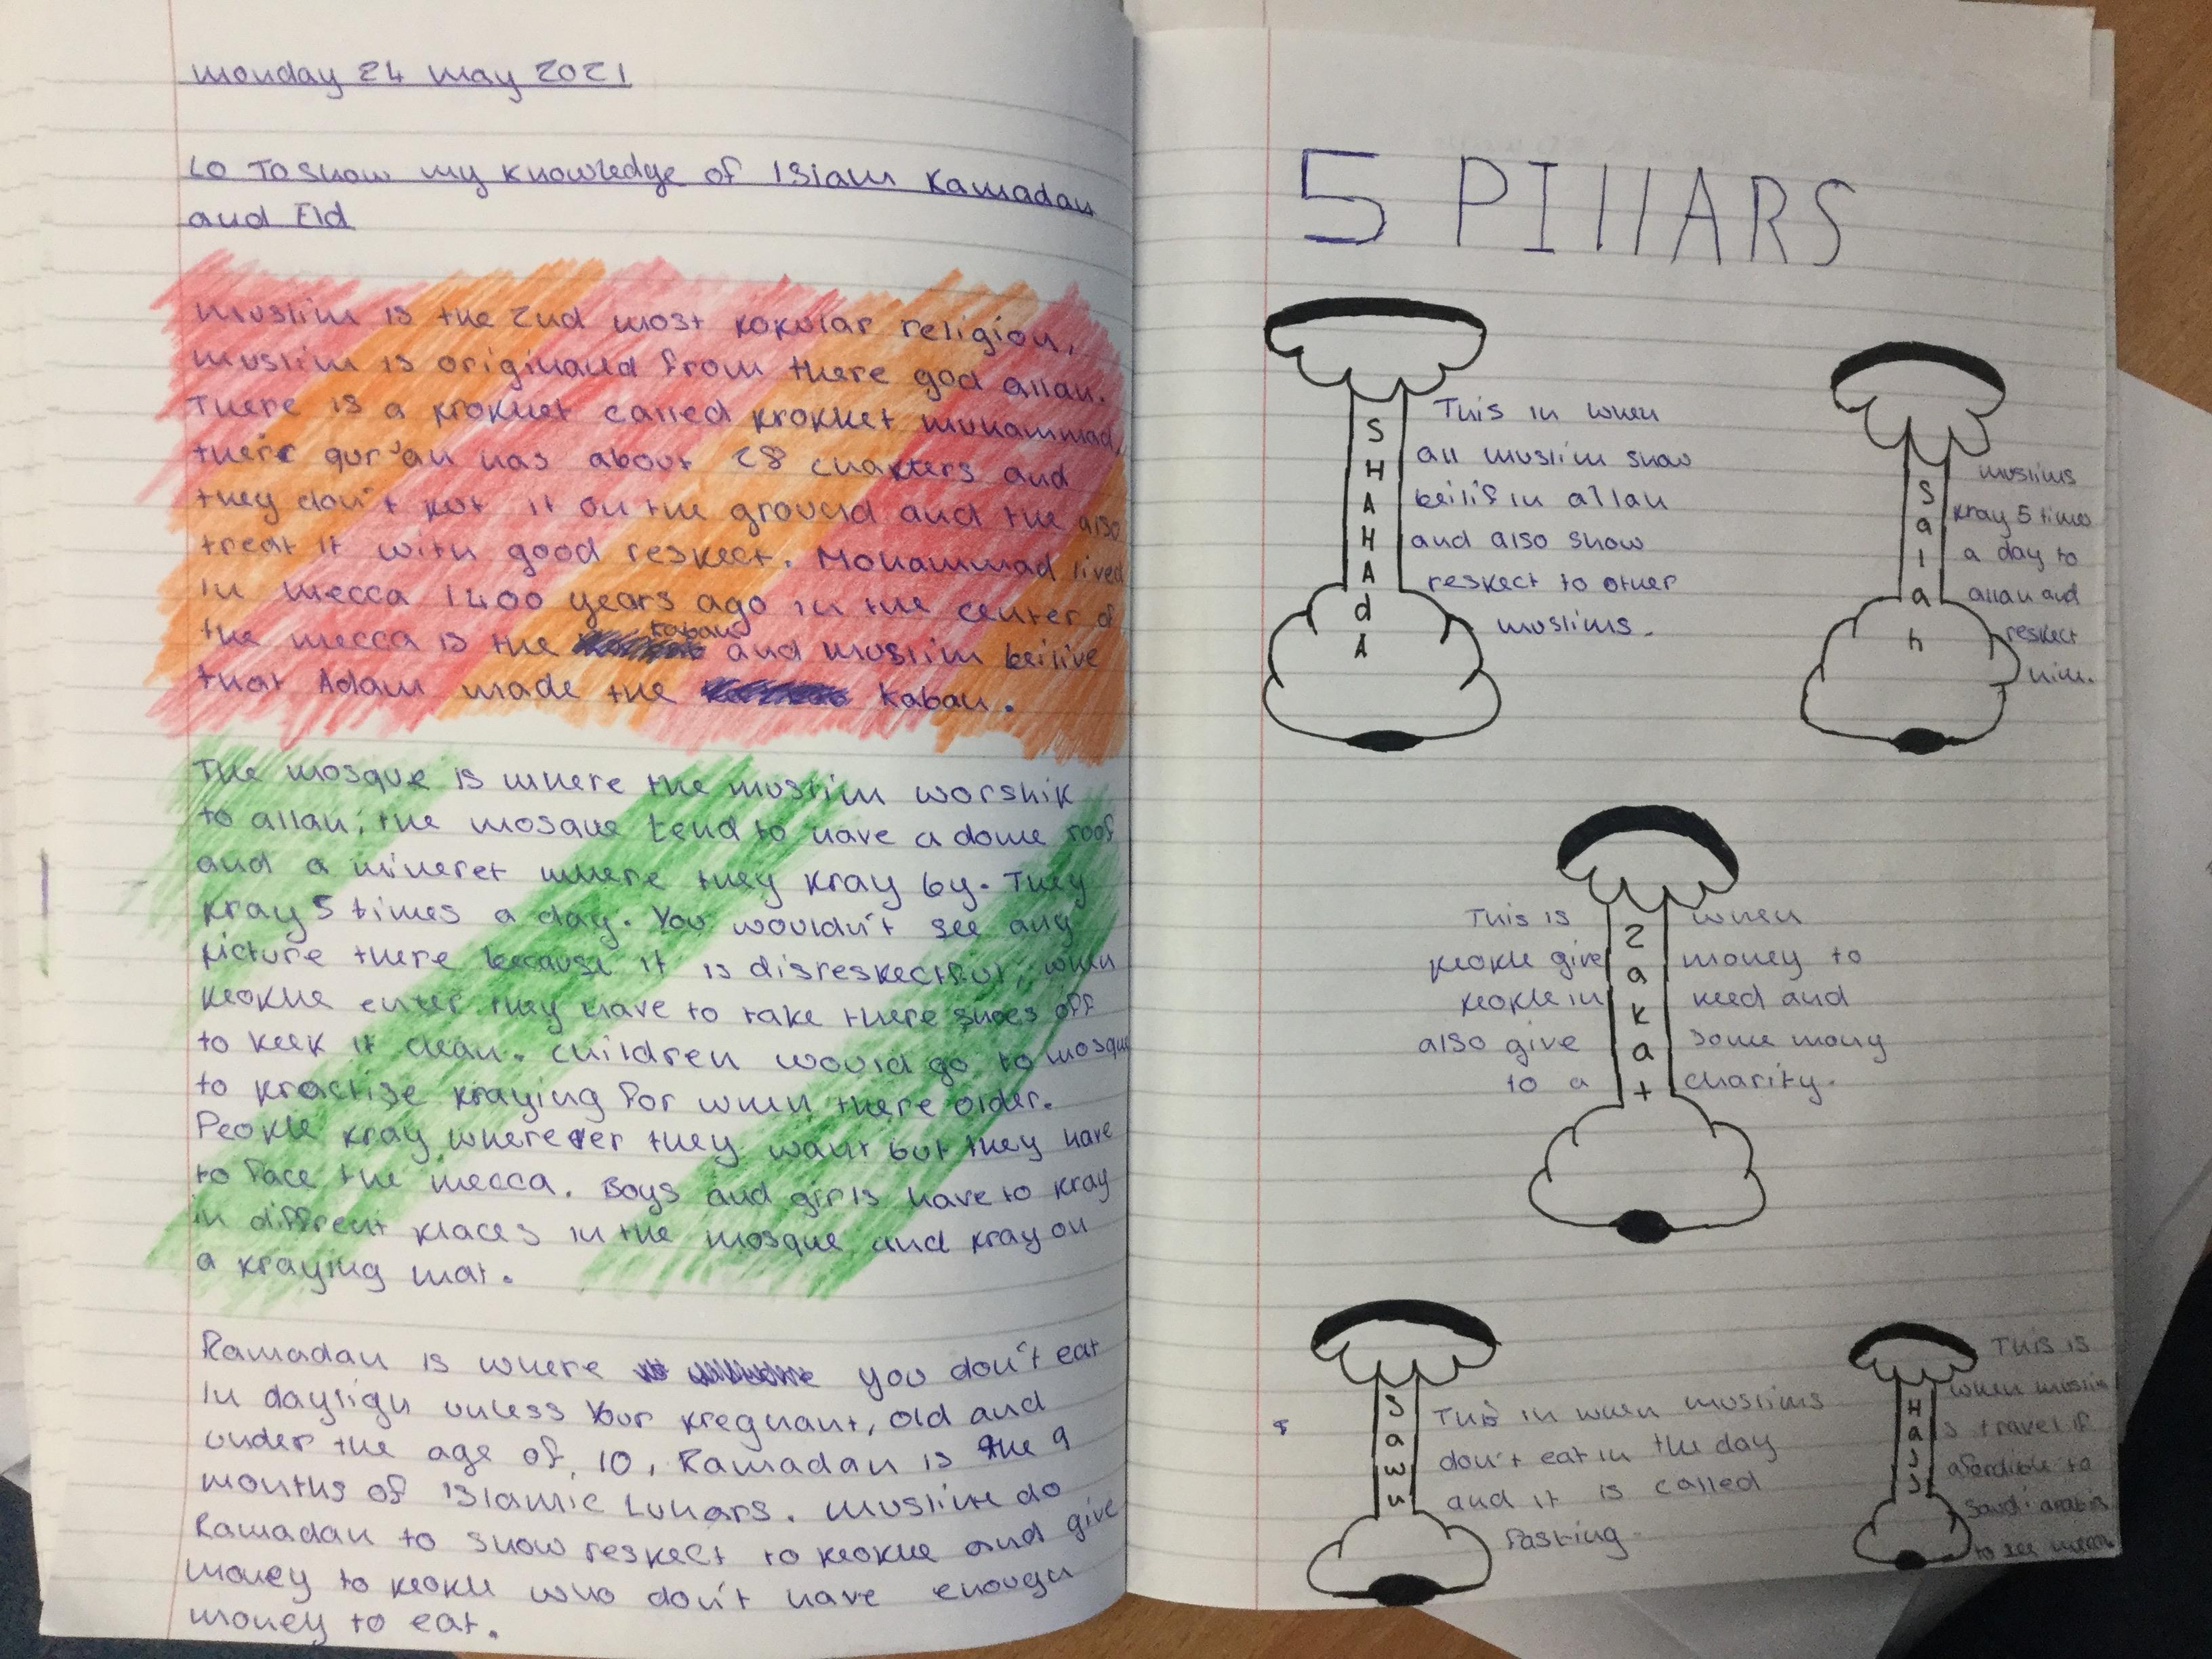 monday 24 may 2021
LO To show my knowledge of Islam Ramadan
and Eid
muslim is the 2nd most popular religion,
muslim is originaud from there god allah.
There is a prophet called prophet muhammad,
there qur'an has about 28 chapters and
they don't put it on the ground and the also
treat it with good respect. Mohammad lived
in mecca 1400 years ago in the center of
the mecca is the kabah and muslim beilive
that Adam made the kabah.
The mosque is where the muslim worship
to allah, the mosque tend to have a dome roof
and a mineret where they pray by. They
pray 5 times a day. You wouldn't see any
picture there because it is disrespectful, when
people enter they have to take there shoes off
to keep it clean. children would go to mosque
to practise praying for when there older.
People pray wherever they want but they have
to face the mecca. Boys and girls have to pray
in diffrent places in the mosque and pray on
a praying mat.
Ramadan is where you don't eat
in daylign unless Your pregnant, old and
under the age of 10, Ramadan is the 9
months of Islamic Lunars. muslim do
Ramadan to show respect to people and give
money to people who don't have enough
money to eat.
5 PIllARS
SHAHAdA
This in when
all muslim show
beilif in allah
and also show
respect to other
muslims.
Salah
muslims
pray 5 times
a day to
allah and
respect
him.
Zakat
This is when
people give money to
people in need and
also give some mony
to a charity.
Sawm
This in when muslims
don't eat in the day
and it is called
fasting
Hajj
This is
when muslim
s travel if
afordible to
Saudi arabia
to see mecca